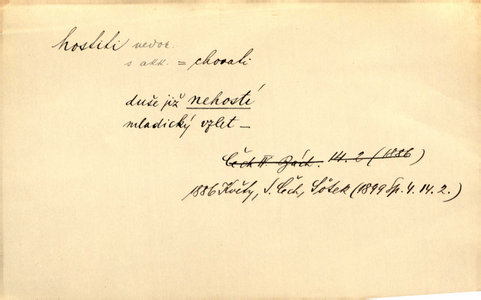 hostiti nedok.
s akk. = chovati
duše již nehostí
mladický vzlet —
Čech II 14. 2 (1886)
1886 Květy, S. Čech, Sótek (1899 Sp. 4. 14. 2.)